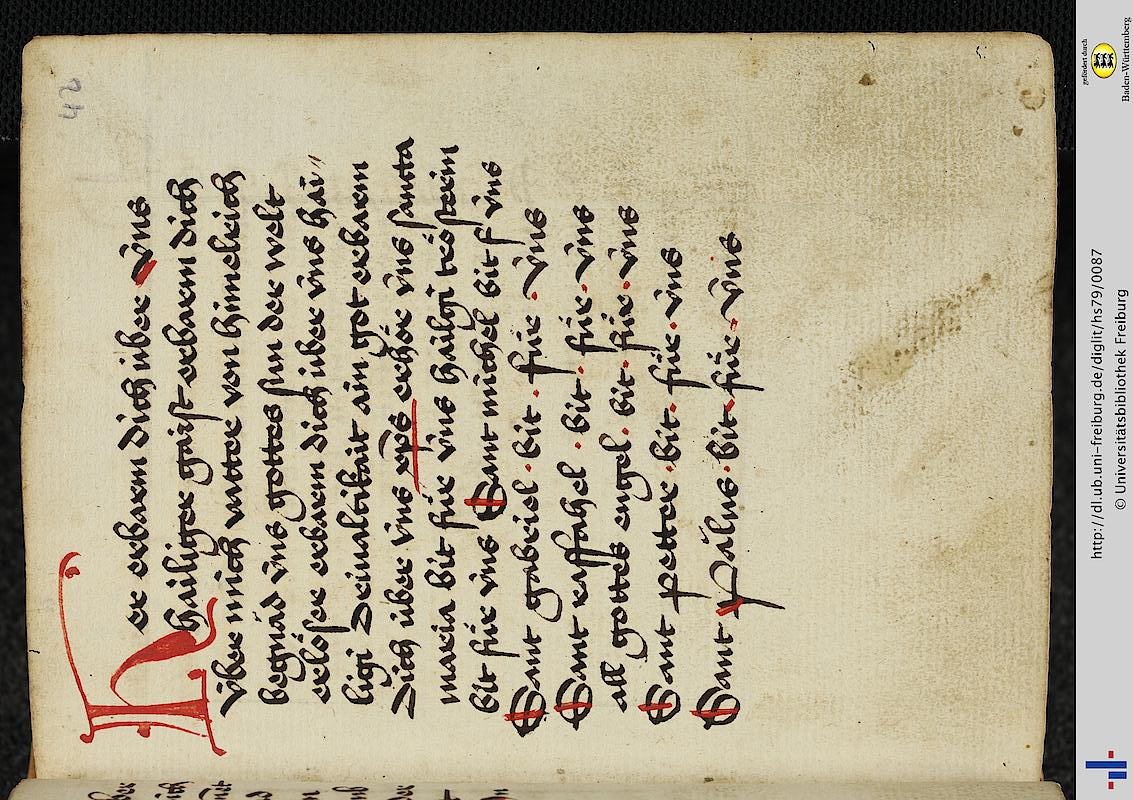 42
Her erbarm dich über vns
hailiger gaist erbarm dich
über mich vatter von himelrich
begnad vns gottes sun der welt
erlöser erbarm dich über vns hai〃
ligi driualtikait ain got erbarm
dich über vns xp̄s erhör vns santa
maria bit für vns hailgi trösterin
bit für vns Sant michel bit f vns
Sant gabriel · bit · für · vns
Sant raffahel · bit · für · vns
all gottes engel · bit · für · vns
Sant petter · bit · für · vns
Sant palus · bit · für · vns
gefördert durch
Baden-Württemberg
http://dl.ub.uni-freiburg.de/diglit/hs79/0087
© Universitätsbibliothek Freiburg